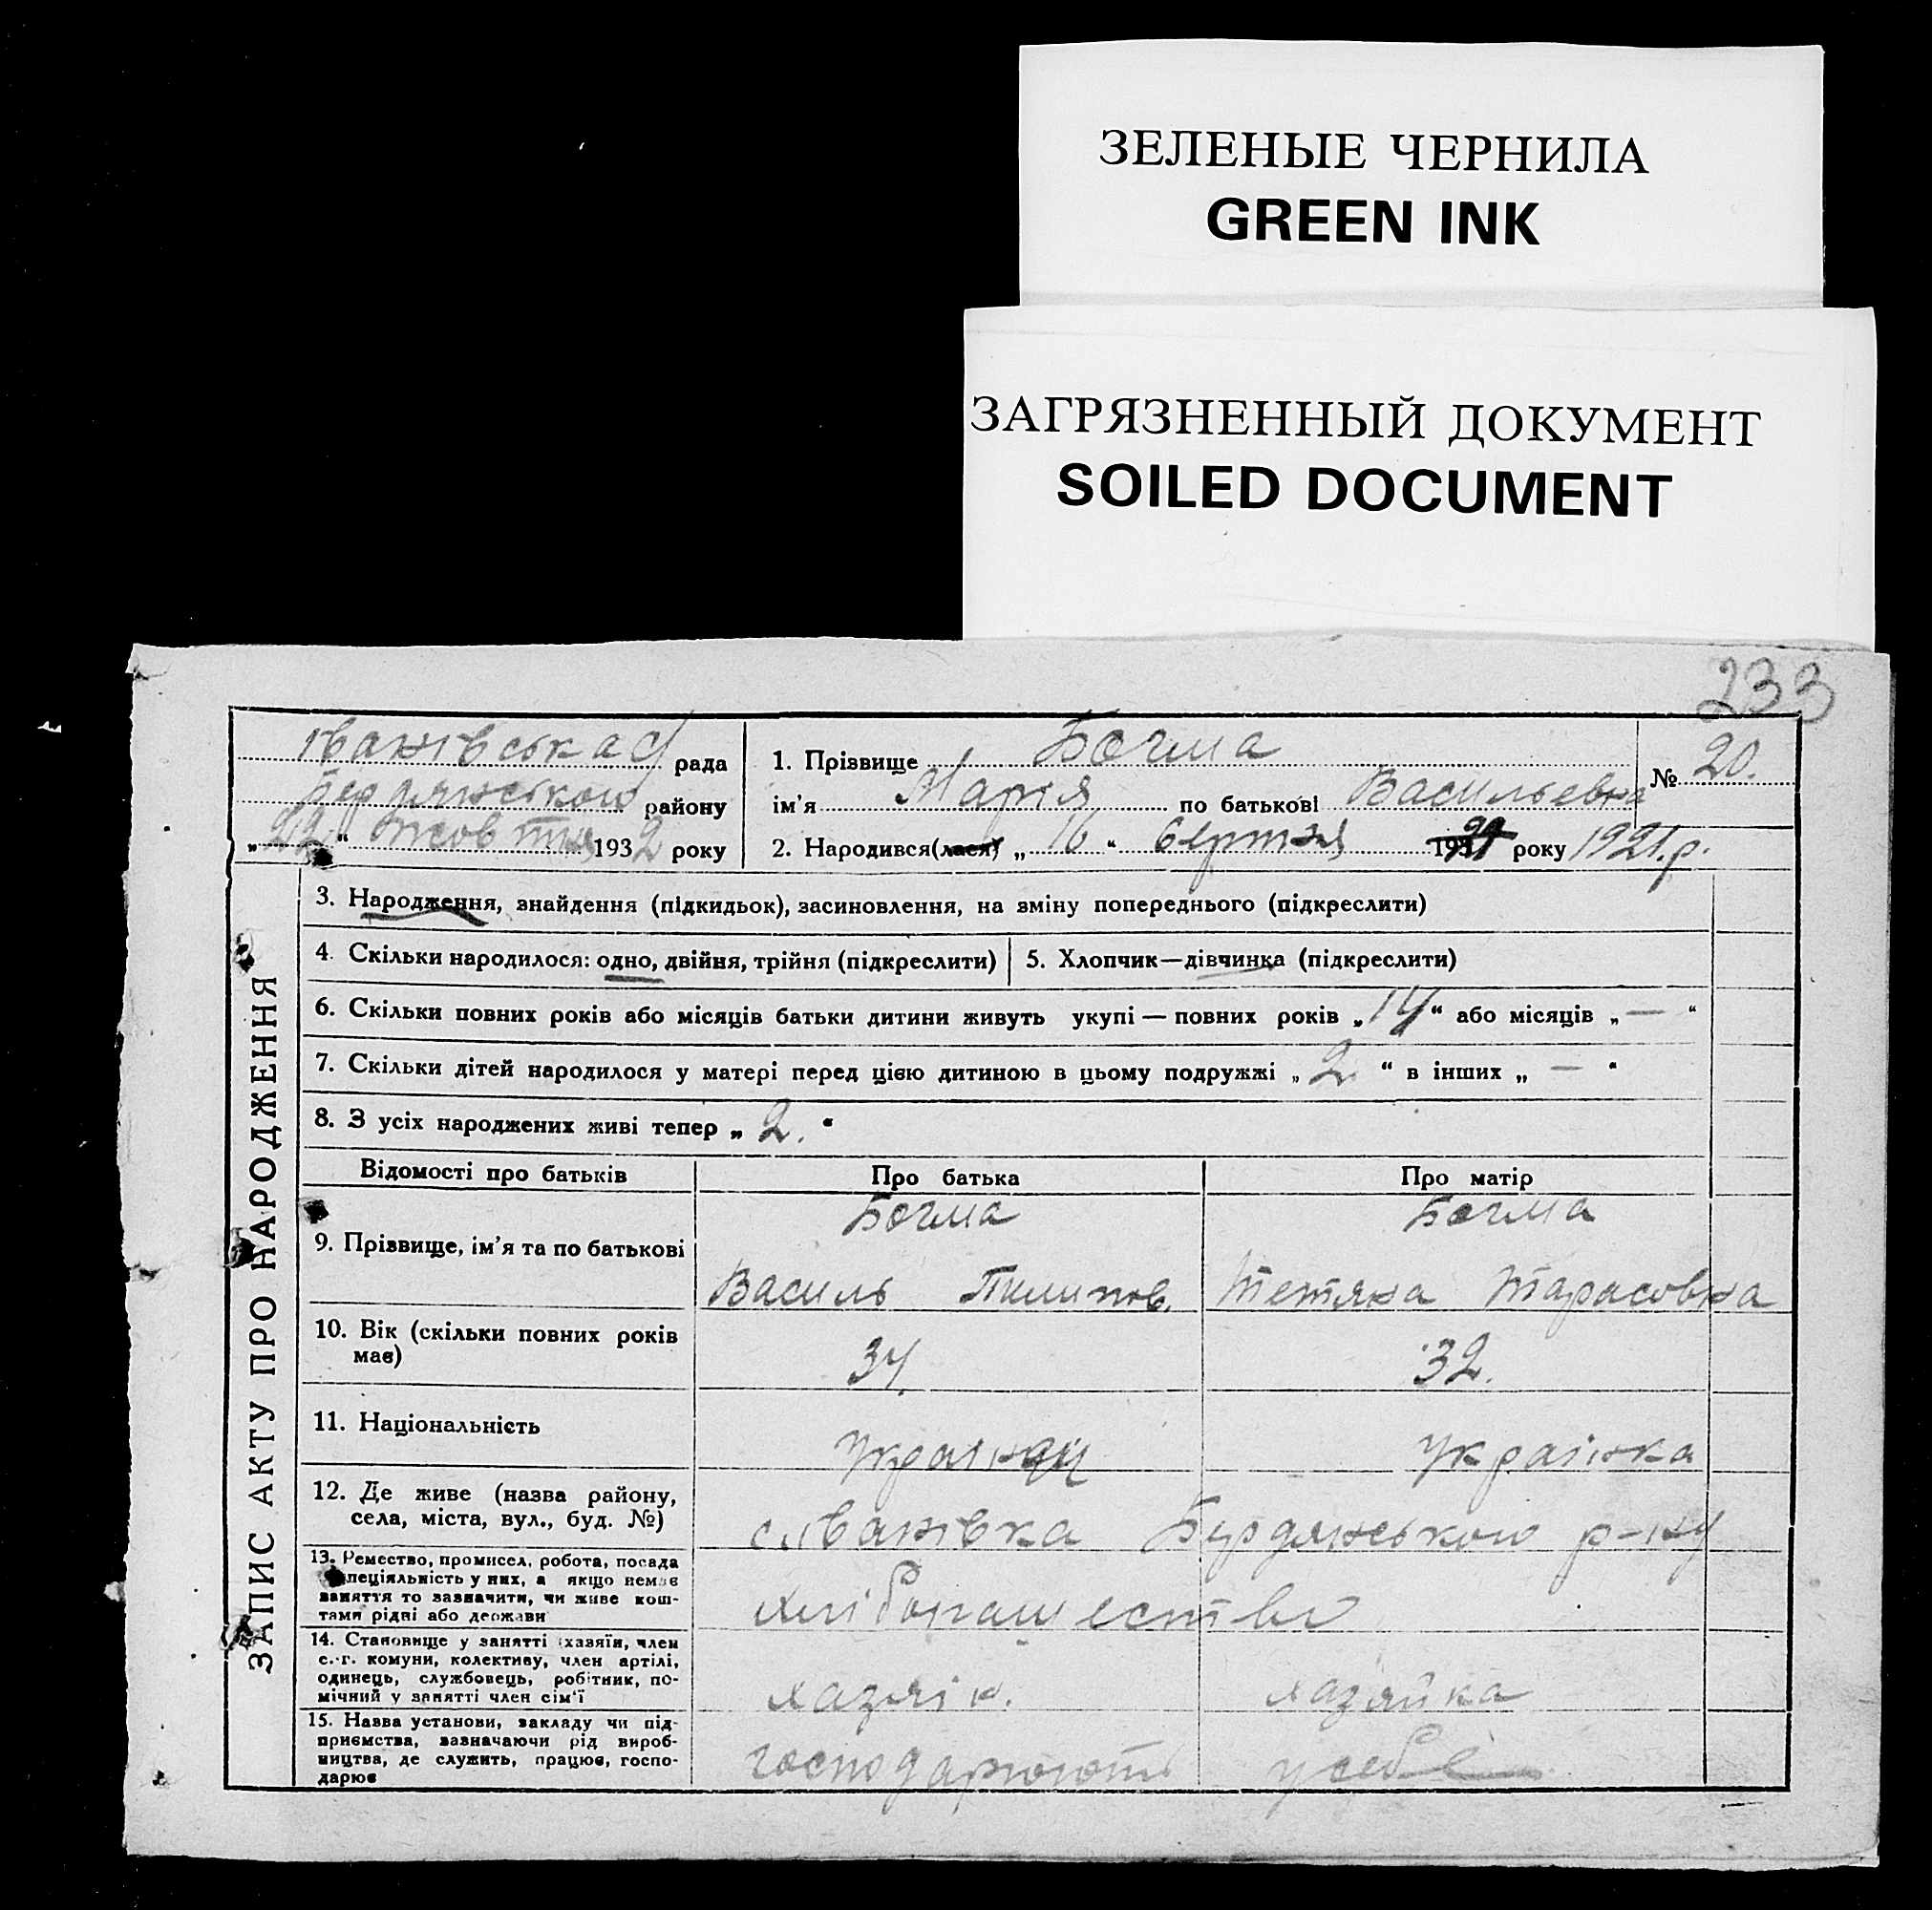 ЗЕЛЕНЫЕ ЧЕРНИЛА
GREEN INK
ЗАГРЯЗНЕННЫЙ ДОКУМЕНТ
SOILED DOCUMENT
233
Іванівська с/ рада
Бердянського району
„22“ Жовтня 1932 року
1. Прізвище Бочма
ім'я Марія по батькові Васильевна
№ 20.
2. Народився(лася) „16“ Серпня року 1921.р.
ЗАПИС АКТУ ПРО НАРОДЖЕННЯ
3. Народження, знайдення (підкидьок), засиновлення, на зміну попереднього (підкреслити)
4. Скільки народилося: одно, двійня, трійня (підкреслити)
5. Хлопчик—дівчинка (підкреслити)
6. Скільки повних років або місяців батьки дитини живуть укупі — повних років „14“ або місяців „—“
7. Скільки дітей народилося у матері перед цією дитиною в цьому подружжі „2“ в інших „—“
8. З усіх народжених живі тепер „2.“
Відомості про батьків
Про батька
Про матір
9. Прізвище, ім'я та по батькові
Бочма
Василь Пилипов.
Бочма
Тетяна Тарасовна
10. Вік (скільки повних років
має)
34.
32.
11. Національність
Українец
Українка
12. Де живе (назва району,
села, міста, вул., буд. №)
с Іванівка Бердянського р-ну
13. Ремество, промисел, робота, посада
спеціяльність у них, а якщо немає
заняття то зазначити, чи живе кош-
тами рідні або держави
хлібопашество
14. Становище у занятті (хазяїн, член
с.-г. комуни, колективу, член артілі,
одинець, службовець, робітник, по-
мічний у занятті член сім'ї
хазяїн.
хазяйка
15. Назва установи, закладу чи під-
приємства, зазначаючи рід вироб-
ництва, де служить, працює, госпо-
дарює
господарюють у себе